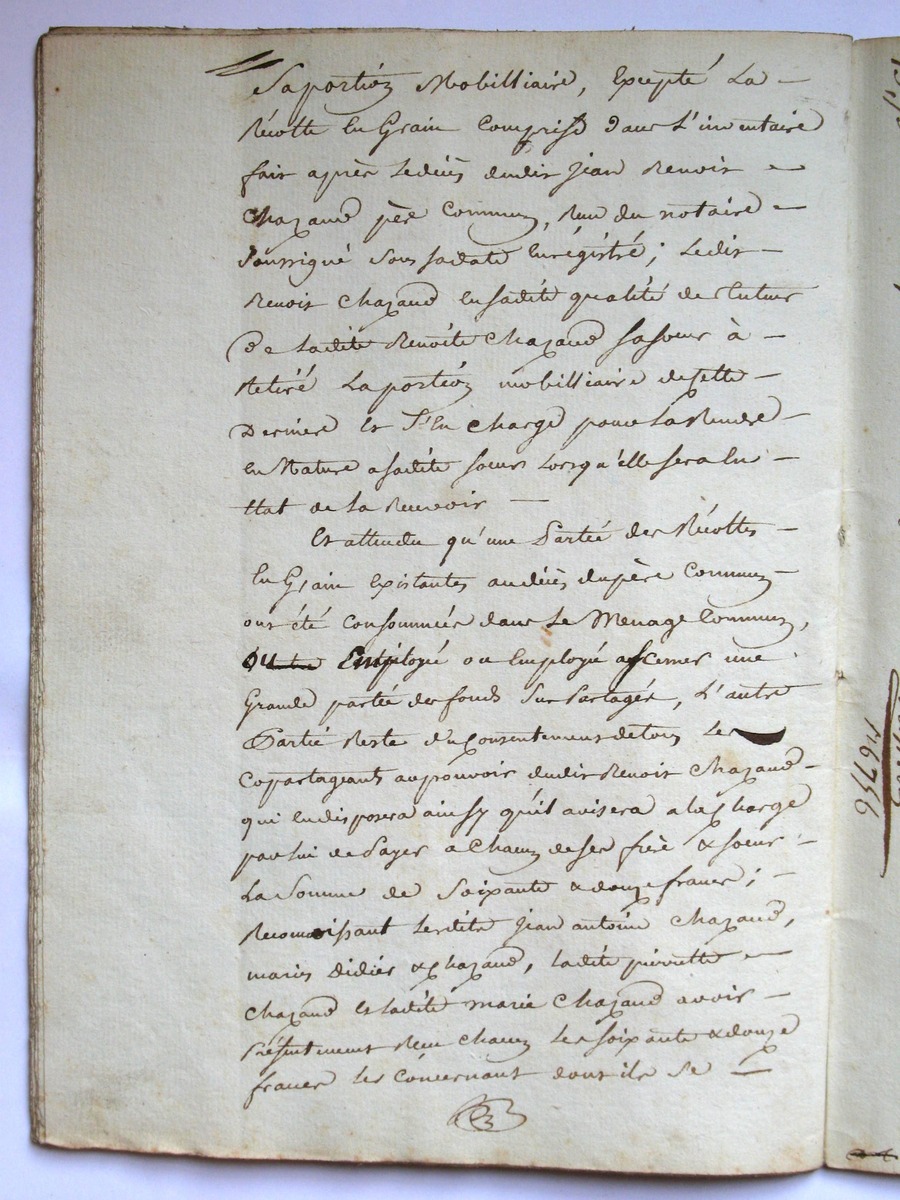 Saportion Mobilliaire, Excepté La
Récolte En Grain Comprise Dans L'inventaire
fait après Ledécès dudit jean Benoit
Chazaud père Commun, Reçu du notaire
Soussigné sous sadate Enrégistré; Ledit
Benoit Chazaud En saditte qualité de tuteur
De Laditte Benoite Chazaud sa soeur à
Retiré La portion mobilliaire de Cette
Derniere Et S'En Charge pour La Rendre
En Nature a saditte soeur Lorsqu'elle sera En
Etat de La Recevoir
Et attendu qu'une Partie des Récoltes
En Grain Existantes audécès dupère Commun
ont été Consommées dans Le Menage Commun,
ou Employé a semer une
Grande partie des fonds sus Partagés, L'autre
Partie Reste du Consentement de tous Les
Copartageants au pouvoir dudit Benoit Chazaud
qui En disposera ainsy qu'il avisera a la Charge
par Lui de Payer a Chacun de ses frère & soeur
La Somme de Soixante & douze francs;
Reconnoissant Lesdits jean antoine Chazaud,
maries Didier & Chazaud, Laditte pierrette
Chazaud Et Laditte marie Chazaud avoir
Présentement Reçu Chacun Les soixante & douze
francs Les Concernant dont ils se